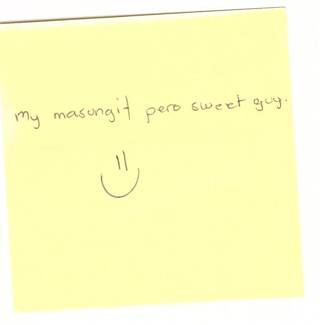 my masungit pero sweet guy.